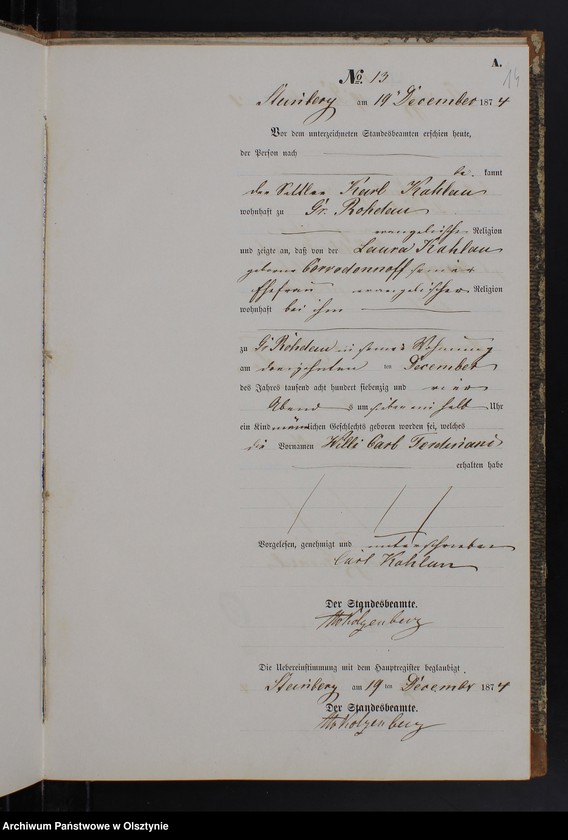 A.
14
No 13
Steinberg am 19' December 1874
Vor dem unterzeichneten Standesbeamten erschien heute,
der Person nach
be kannt
der Karl Kahlau
wohnhaft zu Gr. Rohdau
evangelischer Religion
und zeigte an, daß von der Laura Kahlau
geborne seiner
Ehefrau evangelischer Religion
wohnhaft bei ihm
zu Gr Rohdau in seiner Wohnung
am dreizehnten ten December
des Jahres tausend acht hundert siebenzig und vier
Abend s um sieben ein halb Uhr
ein Kind männlichen Geschlechts geboren worden sei, welches
die Vornamen Willi Carl Ferdinand
erhalten habe
Vorgelesen, genehmigt und unterschrieben
Carl Kahlau
Der Standesbeamte.
Die Uebereinstimmung mit dem Hauptregister beglaubigt
Steinberg am 19 ten December 1874
Der Standesbeamte.
Archiwum Państwowe w Olsztynie